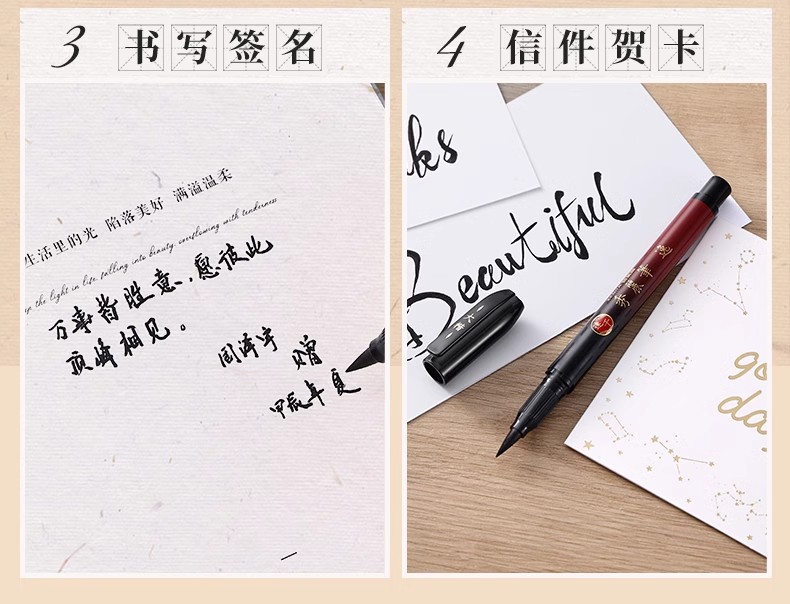 3 书写签名
生活里的光 陷落美好 满溢温柔
up the light in life, falling into beauty, overflowing with tenderness
万事皆胜意，愿彼此
顶峰相见。
周泽宇 赠
甲辰年夏
4 信件贺卡
ks
Beautiful
大师
秀慧笔 选
go
day